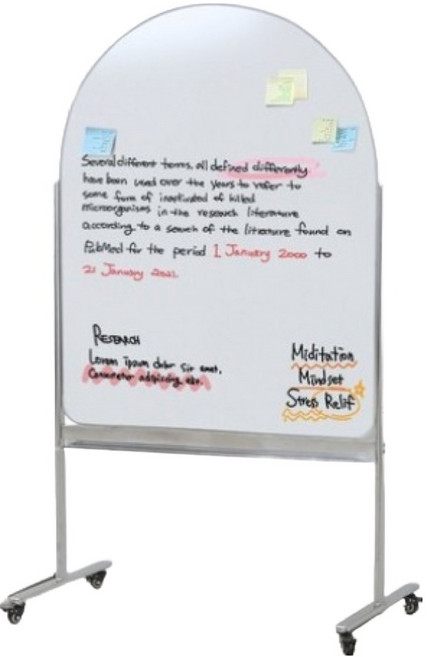 Several different terms, all defined differently
have been used over the years to refer to
some form of inactivated of killed
microorganisms in the research literature
according, to a search of the literature found on
PubMed for the period 1 January 2000 to
21 January 2021.
RESEARCH
Lorem ipsum dolor sir amet,
Consectetur adipiscing elit
Miditation
Mindset
Stress Relif